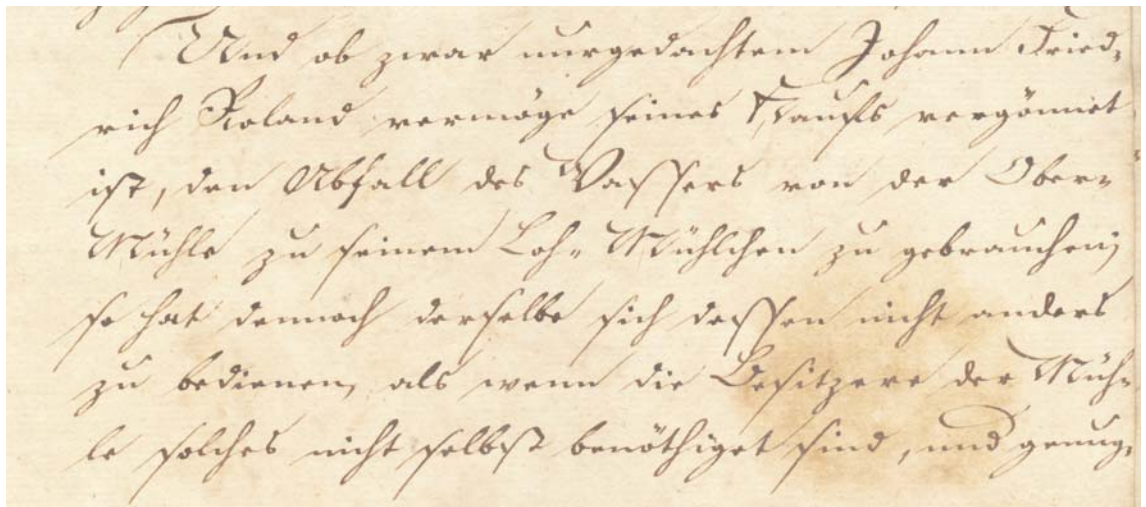 Und ob zwar nurgedachtem Johann Fried,
rich Roland vermöge seines Kaufs vergönnet
ist, den Abfall des Wassers von der Ober„
Mühle zu seinem Loh„ Mühlchen zu gebrauchen;
so hat dennoch derselbe sich dessen nicht anders
zu bedienen, als wenn die Besitzere der Müh„
le solches nicht selbst benöthiget sind, und genug„